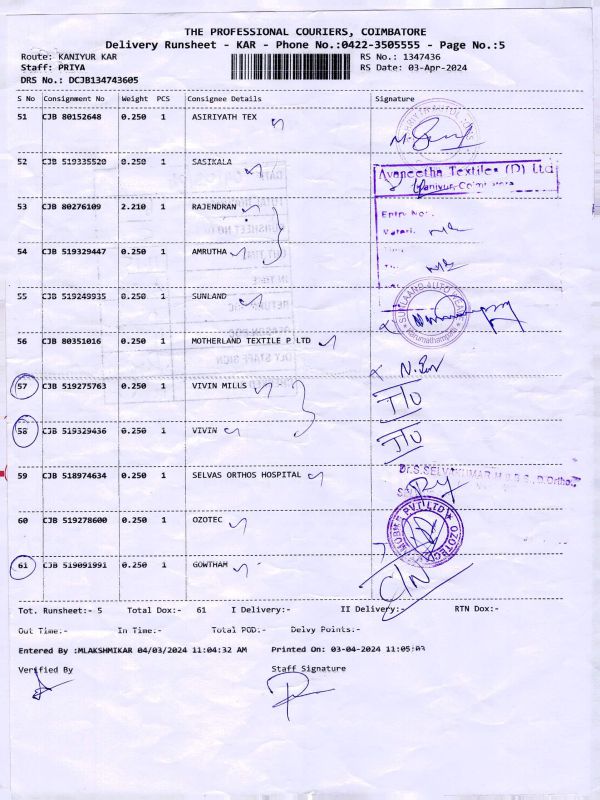 THE PROFESSIONAL COURIERS, COIMBATORE
Delivery Runsheet - KAR - Phone No.:0422-3505555 - Page No.:5
Route: KANIYUR KAR RS No.: 1347436
Staff: PRIYA RS Date: 03-Apr-2024
DRS No.: DCJB134743605
S No Consignment No Weight PCS Consignee Details Signature
51 CJB 80152648 0.250 1 ASIRIYATH TEX
52 CJB 519335520 0.250 1 SASIKALA
Avaneetha Textiles (P) Ltd
Kaniyur, Coimbatore
53 CJB 80276109 2.210 1 RAJENDRAN
Entry No.
54 CJB 519329447 0.250 1 AMRUTHA
55 CJB 519249935 0.250 1 SUNLAND
56 CJB 80351016 0.250 1 MOTHERLAND TEXTILE P LTD
57 CJB 519275763 0.250 1 VIVIN MILLS
58 CJB 519329436 0.250 1 VIVIN
59 CJB 518974634 0.250 1 SELVAS ORTHOS HOSPITAL
Dr.S.SELVAKUMAR M.B.B.S., D.Ortho.,
60 CJB 519278600 0.250 1 OZOTEC
PVT LTD OZOTEC
61 CJB 519091991 0.250 1 GOWTHAM
C/N
Tot. Runsheet:- 5 Total Dox:- 61 I Delivery:- II Delivery:- RTN Dox:-
Out Time:- In Time:- Total POD:- Delvy Points:-
Entered By :MLAKSHMIKAR 04/03/2024 11:04:32 AM Printed On: 03-04-2024 11:05:03
Verified By Staff Signature